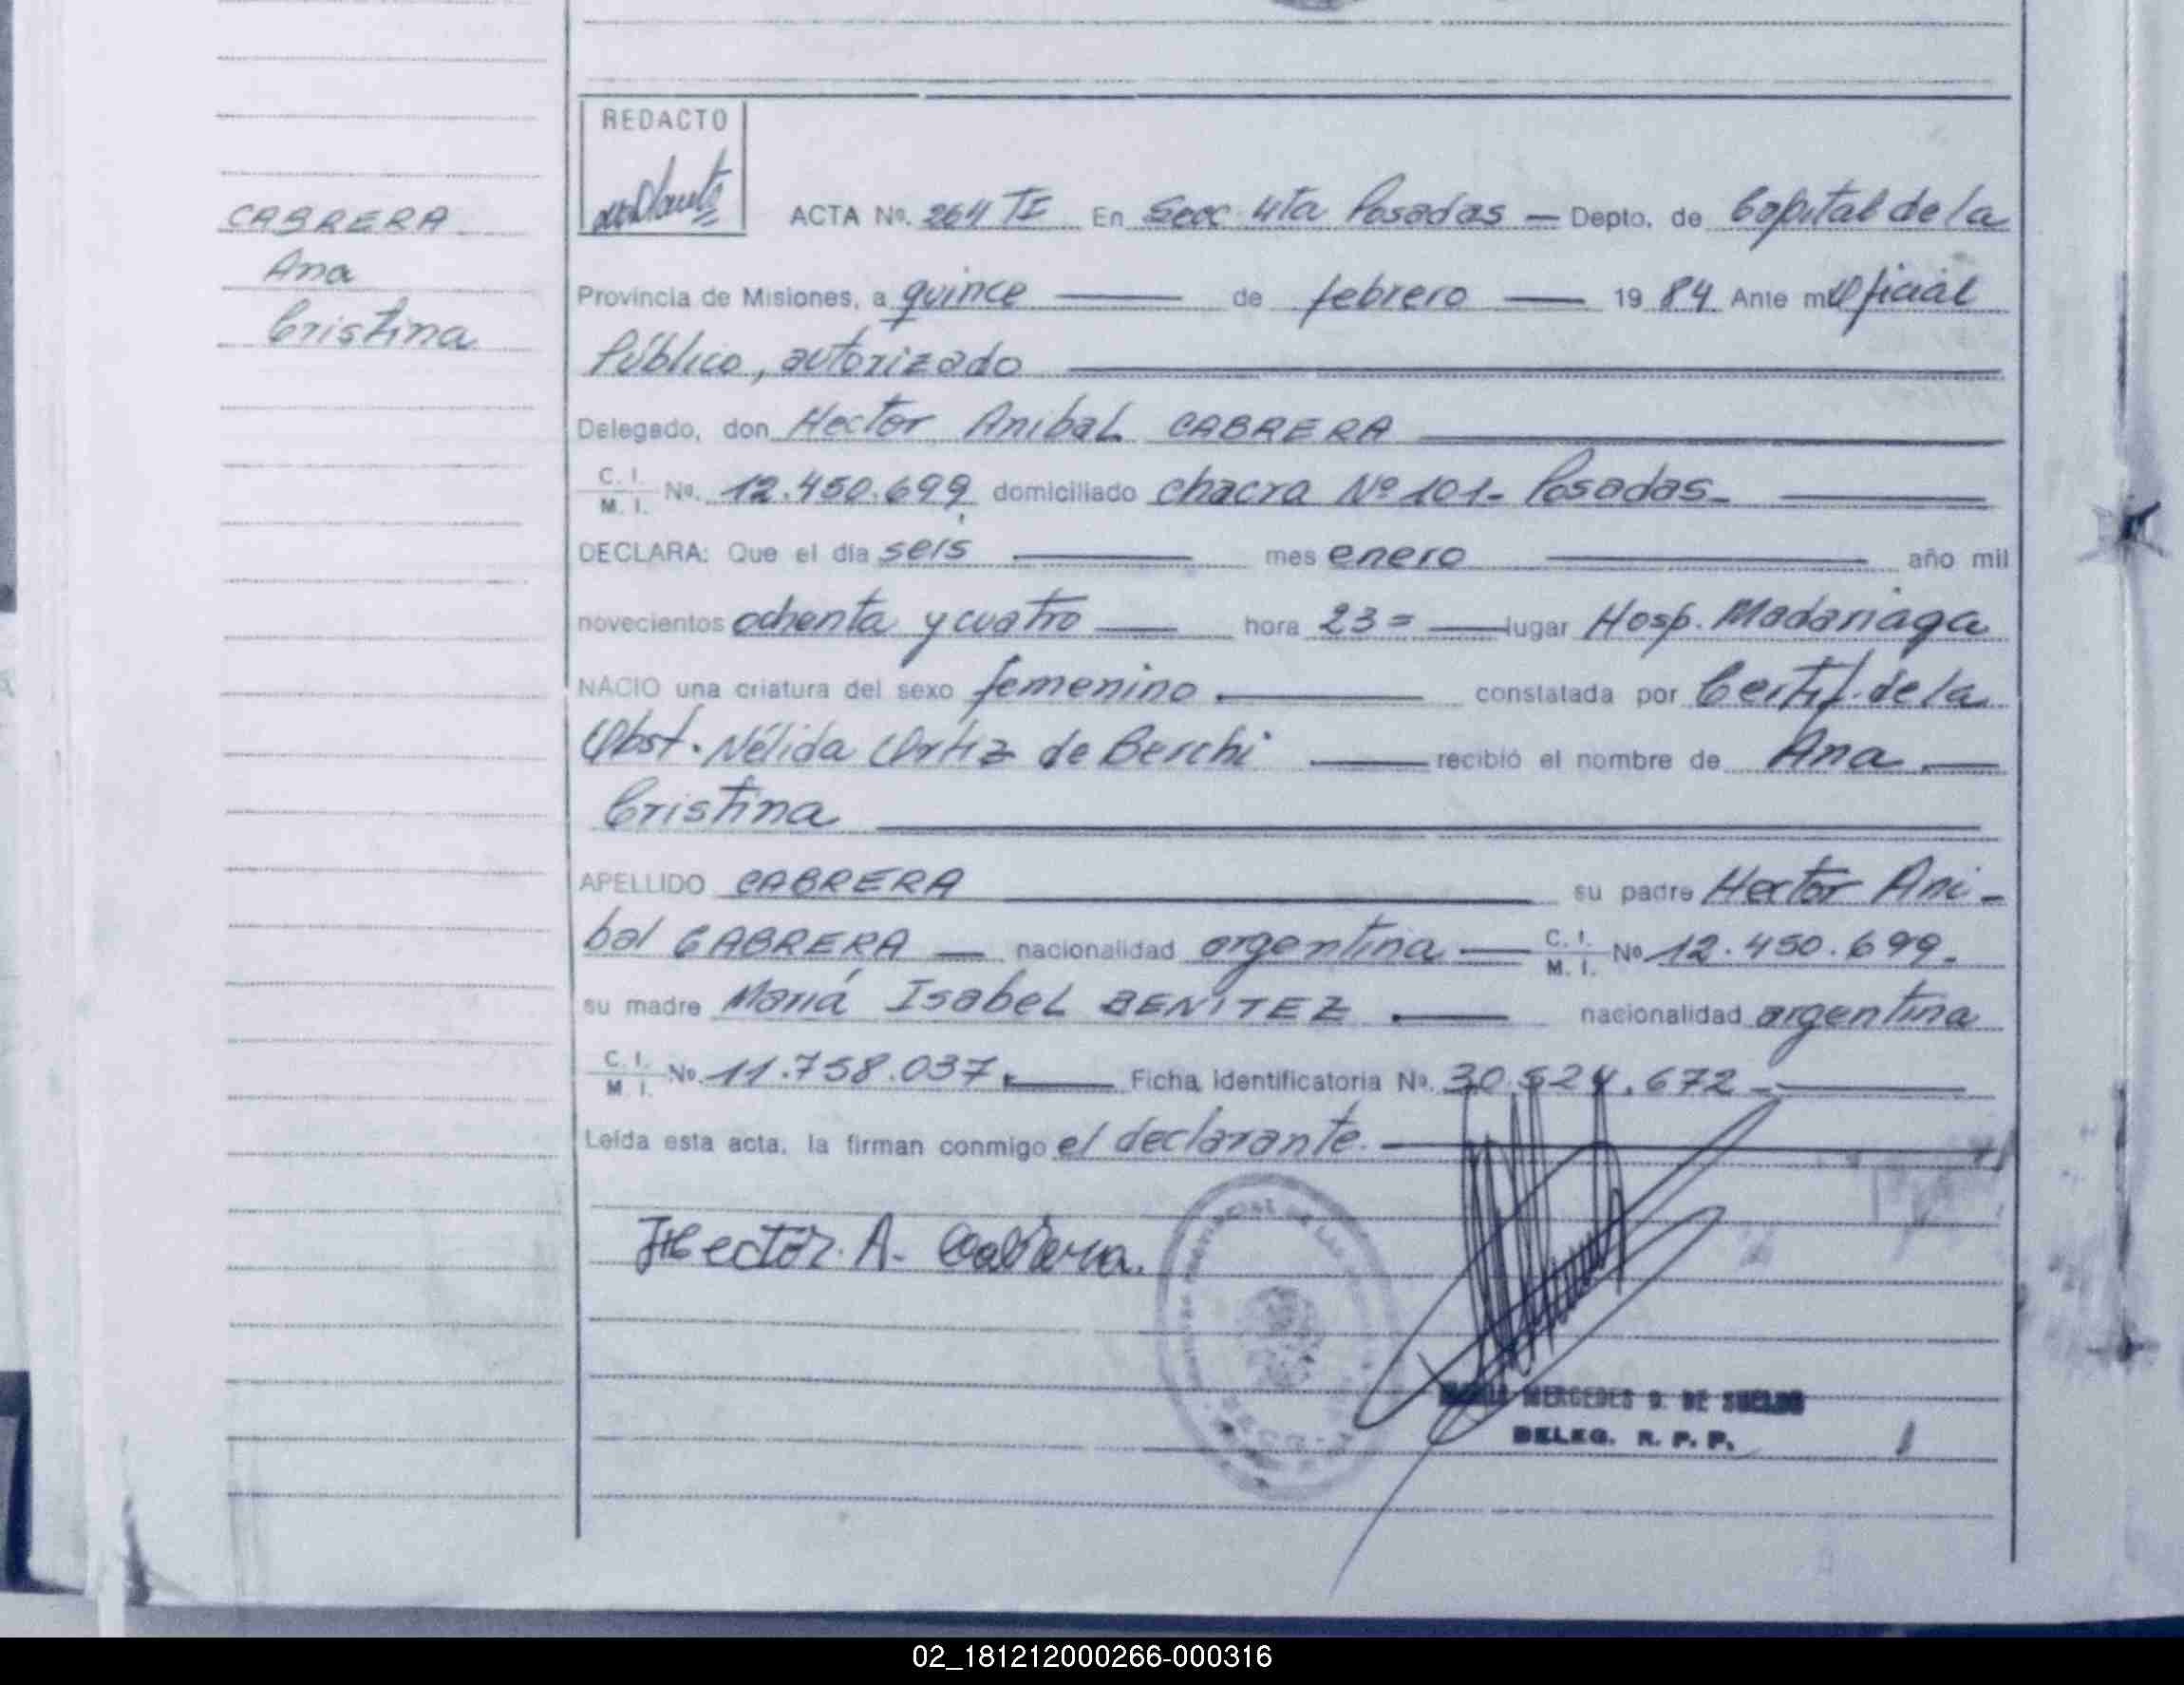 REDACTO
CABRERA
Ana
Cristina
ACTA Nº. 264 TI En Secc 4ta Posadas — Depto. de Capital de la
Provincia de Misiones, a quince — de febrero — 19 84 Ante mi Oficial
Público, autorizado
Delegado, don Hector Anibal CABRERA
C. I. / M. I. Nº. 12.450.699 domiciliado chacra Nº 101- Posadas-
DECLARA: Que el día seis — mes enero — año mil
novecientos ochenta y cuatro — hora 23= — lugar Hosp. Madariaga
NACIO una criatura del sexo femenino. — constatada por Certif. de la
Obst. Nélida Ortiz de Berchi — recibió el nombre de Ana —
Cristina
APELLIDO CABRERA — su padre Hector Ani-
bal CABRERA — nacionalidad argentina — C. I. / M. I. Nº 12.450.699.
su madre María Isabel BENÍTEZ. — nacionalidad argentina
C. I. / M. I. Nº. 11.758.037. — Ficha Identificatoria Nº. 30.524.672 -
Leída esta acta, la firman conmigo el declarante. —
Hector A. Cabrera.
MERCEDES DE
DELEG. R. P. P.
02_181212000266-000316